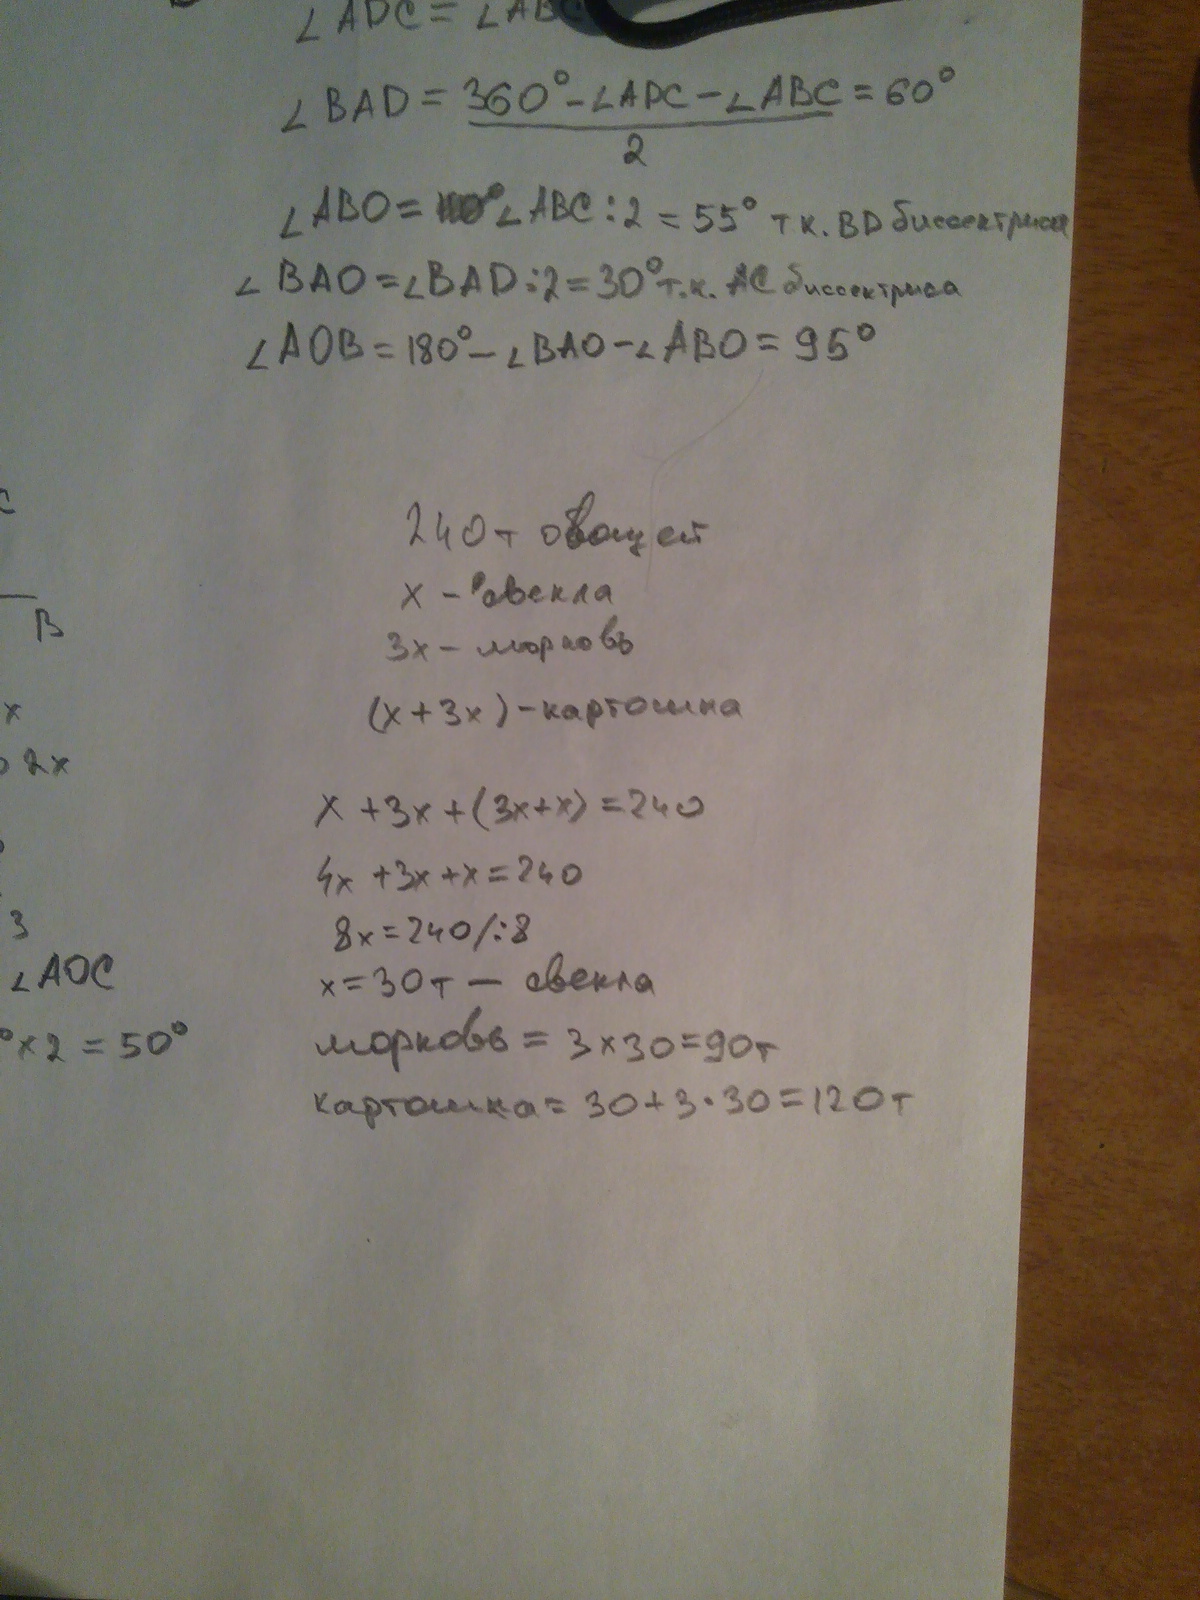 ∠ADC = ∠ABC
∠BAD = (360° - ∠ADC - ∠ABC)/2 = 60°
∠ABO = ∠ABC : 2 = 55° т к. BD биссектриса
∠BAO = ∠BAD : 2 = 30° т.к. AC биссектриса
∠AOB = 180° - ∠BAO - ∠ABO = 95°
240т овощей
x - свекла
3x - морковь
(x + 3x) - картошка
x + 3x + (3x+x) = 240
4x + 3x + x = 240
8x = 240 /:8
x = 30т — свекла
морковь = 3 x 30 = 90т
картошка = 30 + 3 · 30 = 120т
C
B
x
2x
3
∠AOC
° x 2 = 50°